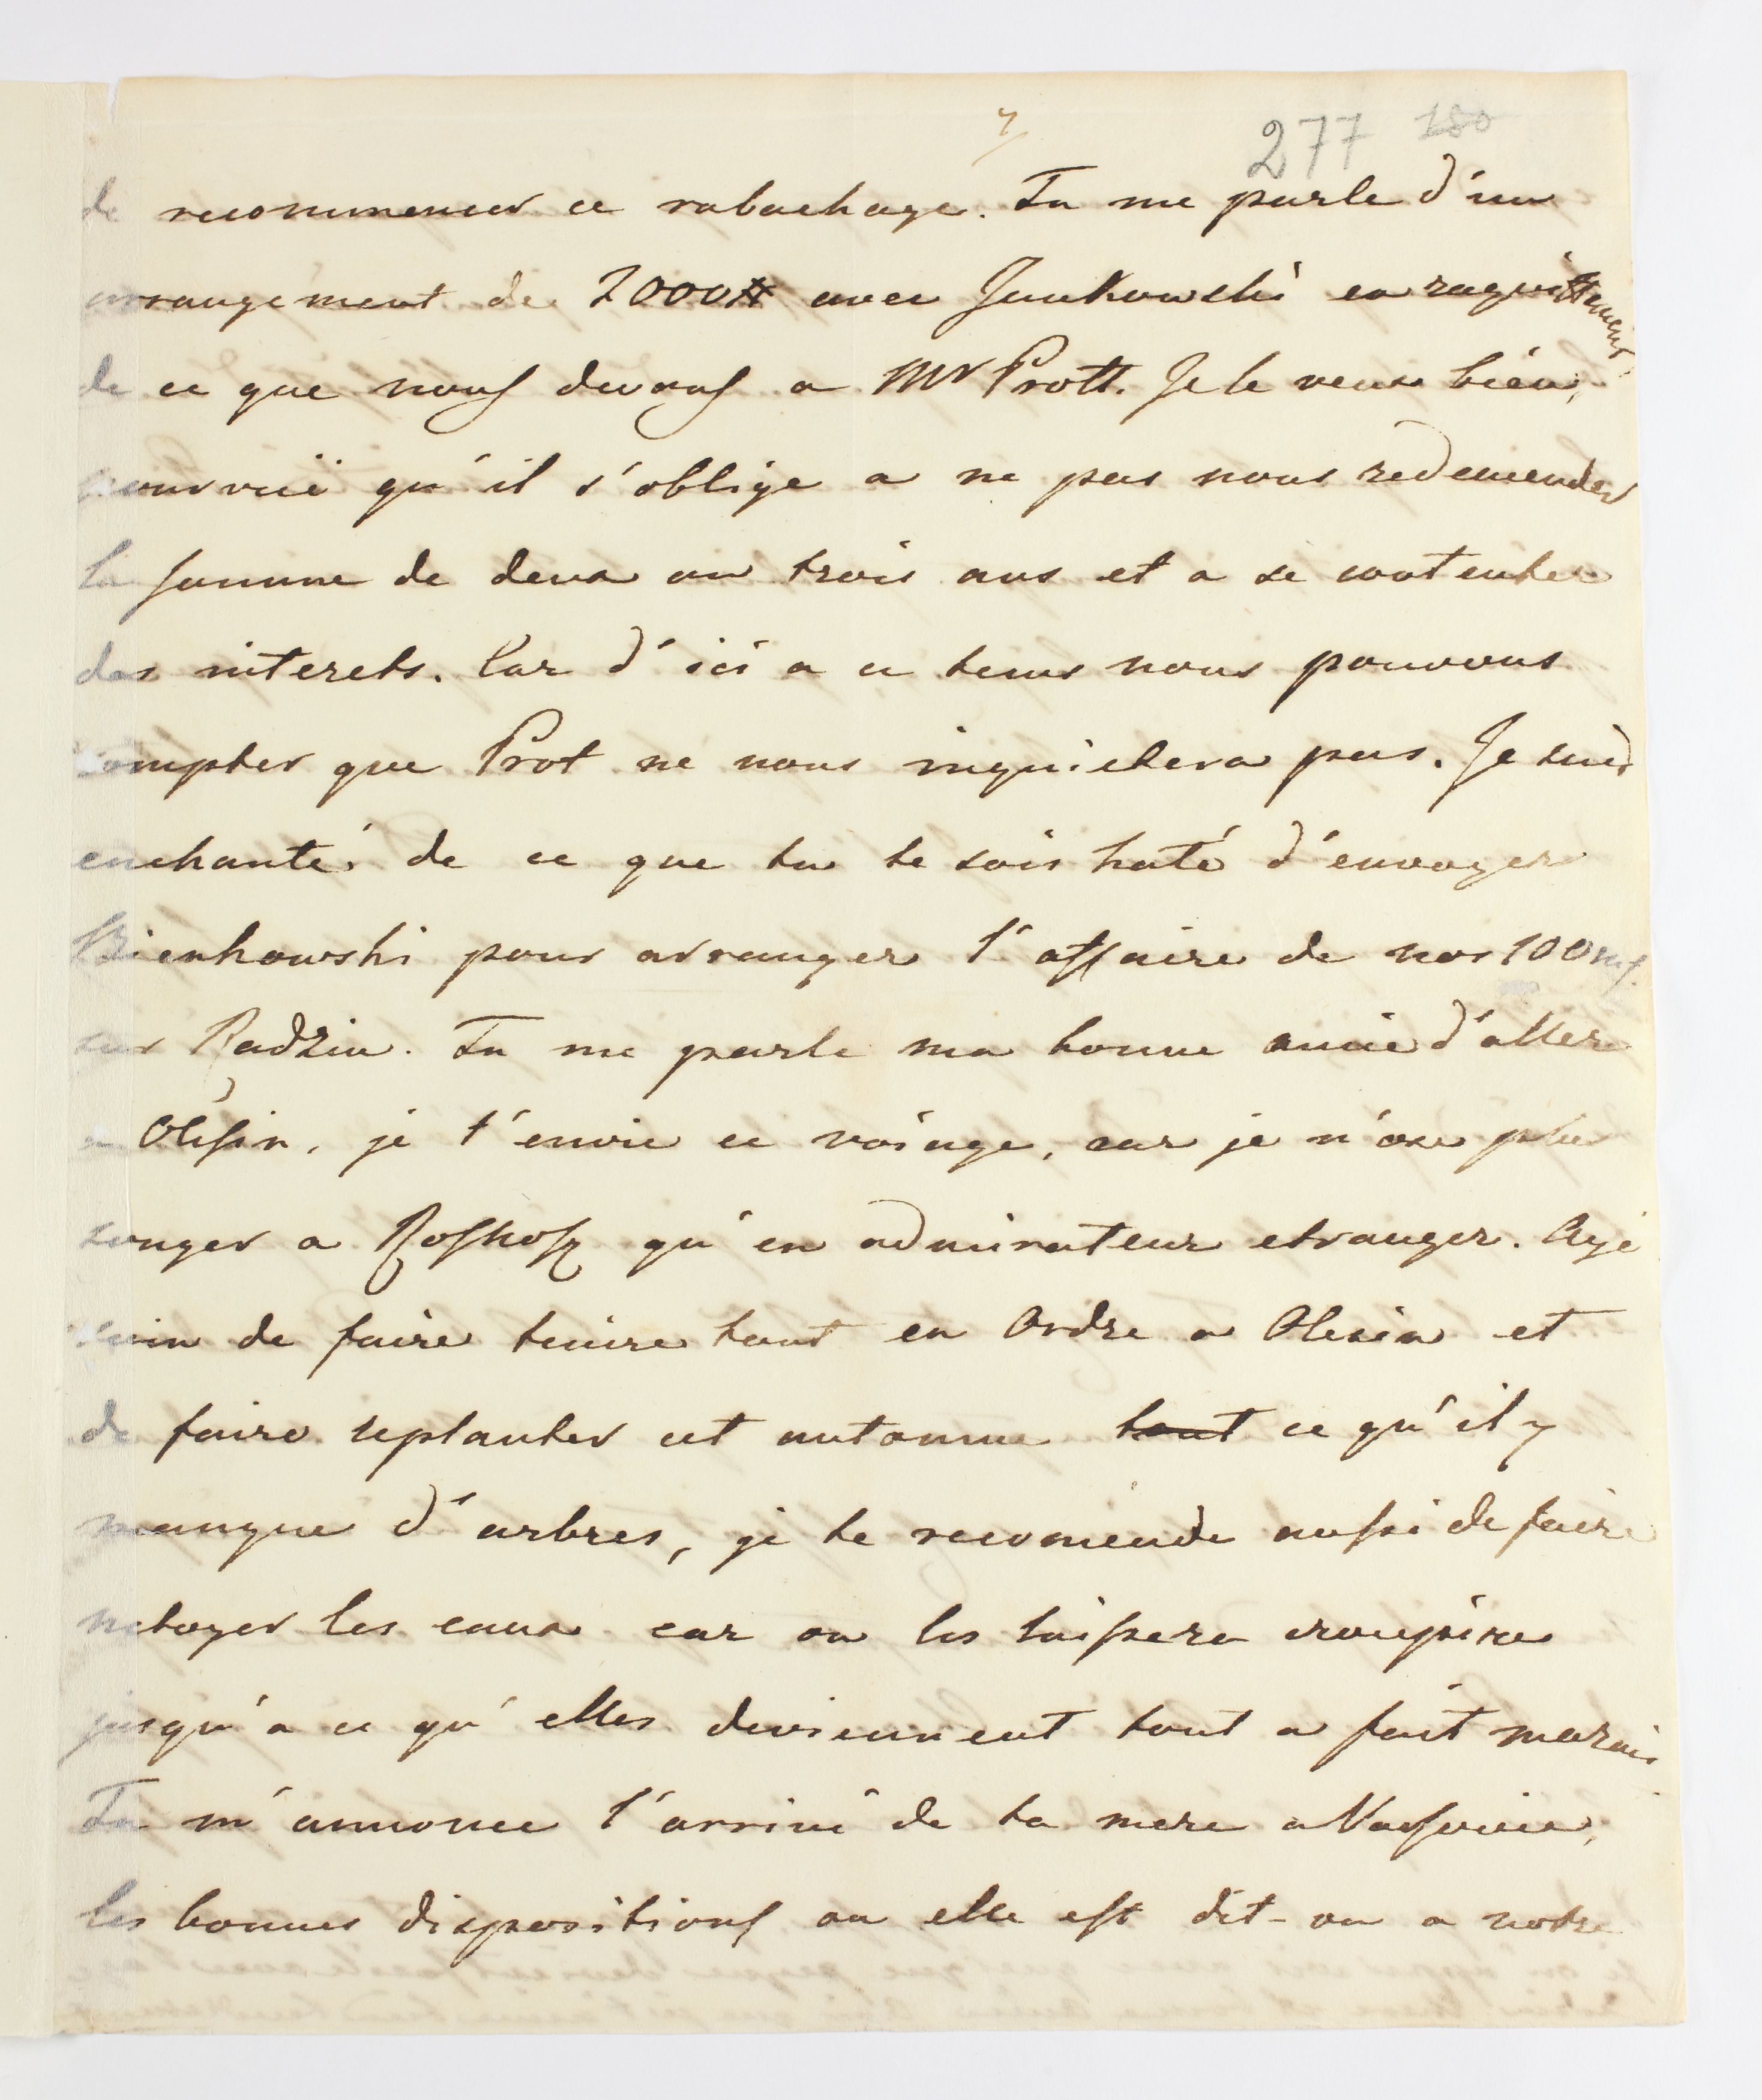 7/
277 180
de recommencer ce rabachage. Tu me parle d'un
arrangement de 2000# avec Junkowski en raquittement
de ce que nous devons a Mr Prott. Je le veux bien,
pourvuë qu'il s'oblige a ne pas nous redemender
la somme de deux ou trois ans et a se contenter
des interets. Car d'ici a ce tems nous pouvons
compter que Prot ne nous inquietera pas. Je suis
enchanté de ce que tu te sois haté d'envoyer
Bienkowski pour arranger l'affaire de nos 100m f.
sur Radzin. Tu me parle ma bonne amie d'aller
a Olesin, je t'envie ce voiage, car je n'ose plus
songer a Roskosz qu'en admirateur etranger. Aye
soin de faire tenire tout en Ordre a Olesin et
de faire replanter cet automne tout ce qu'il y
manque d'arbres, je te recomende aussi de faire
netoyer les eaux car on les laissera croupire
jusqu'a ce qu'elles deviennent tout a fait marais
Tu m'annonce l'arrivé de ta mere a Varsovie,
les bonnes dispositions ou elle est dit-on a notre